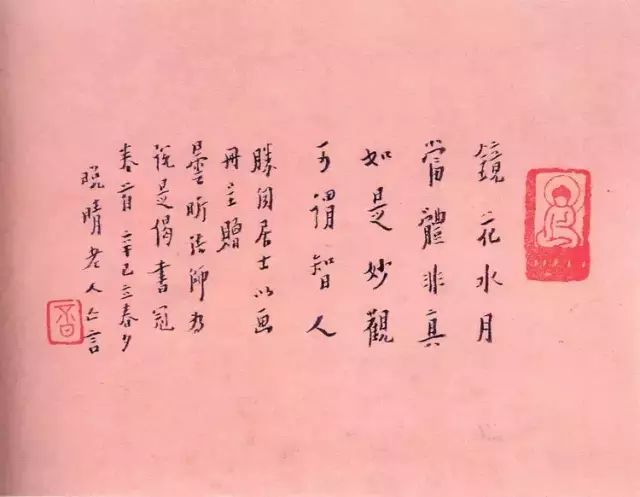 鏡花水月
當體非真
如是妙觀
可謂智人
勝閏居士以畫
冊主贈
曇昕法師為
說是偈書冠
卷首 辛巳立春夕
晚晴老人亡言